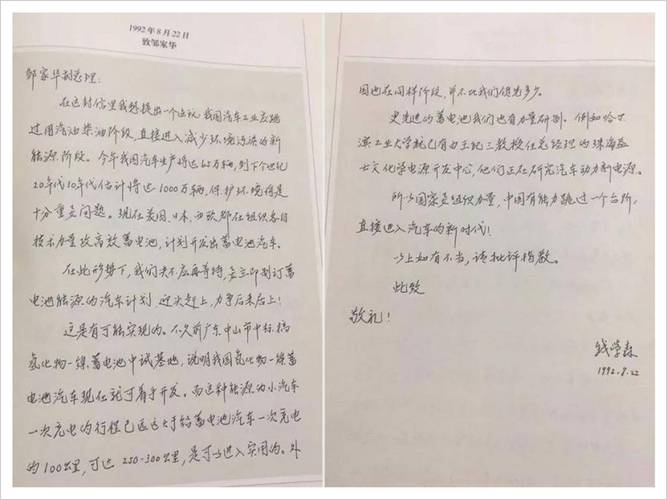 1992年8月22日
致邹家华
邹家华副总理：
在这封信里我想提出一个建议：我国汽车工业应跳
过用汽油柴油阶段，直接进入减少环境污染的新
能源阶段。今年我国汽车生产将达 百万辆，到下个世纪
20年代10年代估计将达1000万辆，保护环境将是
十分重要问题。现在美国、日本、西欧都在组织各自
技术力量攻高效蓄电池，计划开发出蓄电池汽车。
在此形势下，我们决不应再等待，要立即制订蓄
电池能源的汽车计划，迎头赶上，力争后来居上！
这是有可能实现的。不久前广东中山市中标搞
氢化物-镍蓄电池中试基地，说明我国氢化物-镍蓄
电池汽车现在就可着手开发。而这种能源为小汽车
一次充电的行程已远大于铅蓄电池汽车一次充电
的100公里，可达250-300公里，是可以进入实用的。外
国也在同样阶段，并不比我们领先多少。
更先进的蓄电池我们也有力量研制。例如哈尔
滨工业大学就已有由王纪三教授任总经理的珠海益
士文化学电源开发中心，他们正在研究汽车动力新电源。
所以国家要组织力量，中国有能力跳过一个台阶，
直接进入汽车的新时代！
以上如有不当，请批评指教。
此致
敬礼！
钱学森
1992.8.22